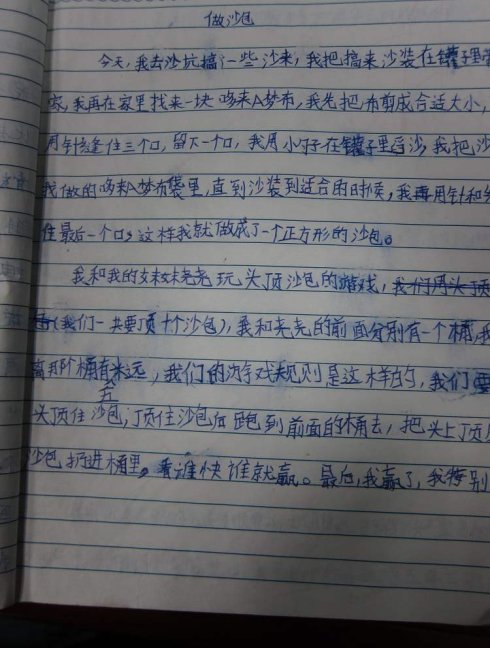 做沙包
今天，我去沙坑搞了一些沙来，我把搞来沙装在罐子里带
家，我再在家里找来一块哆来A梦布，我先把布剪成合适大小，
用针缝住三个口，留下一个口，我用小勺子在罐子里舀沙，我把沙
我做的哆来A梦布袋里，直到沙装到适合的时候，我再用针和
住最后一个口，这样我就做成了一个正方形的沙包。
我和我的妹妹尧尧玩头顶沙包的游戏，我们用头顶
（我们一共要顶十个沙包），我和尧尧的前面分别有一个桶，我
离那个桶有五米远，我们的游戏规则是这样的，我们要
头顶住沙包，顶住沙包后跑到前面的桶去，把头上顶
沙包扔进桶里，看谁快谁就赢。最后，我赢了，我特别